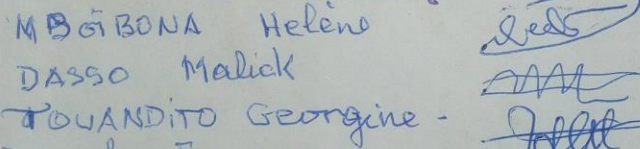 MBOÏBONA Helène
DASSO Malick
TOUANDITO Georgine -